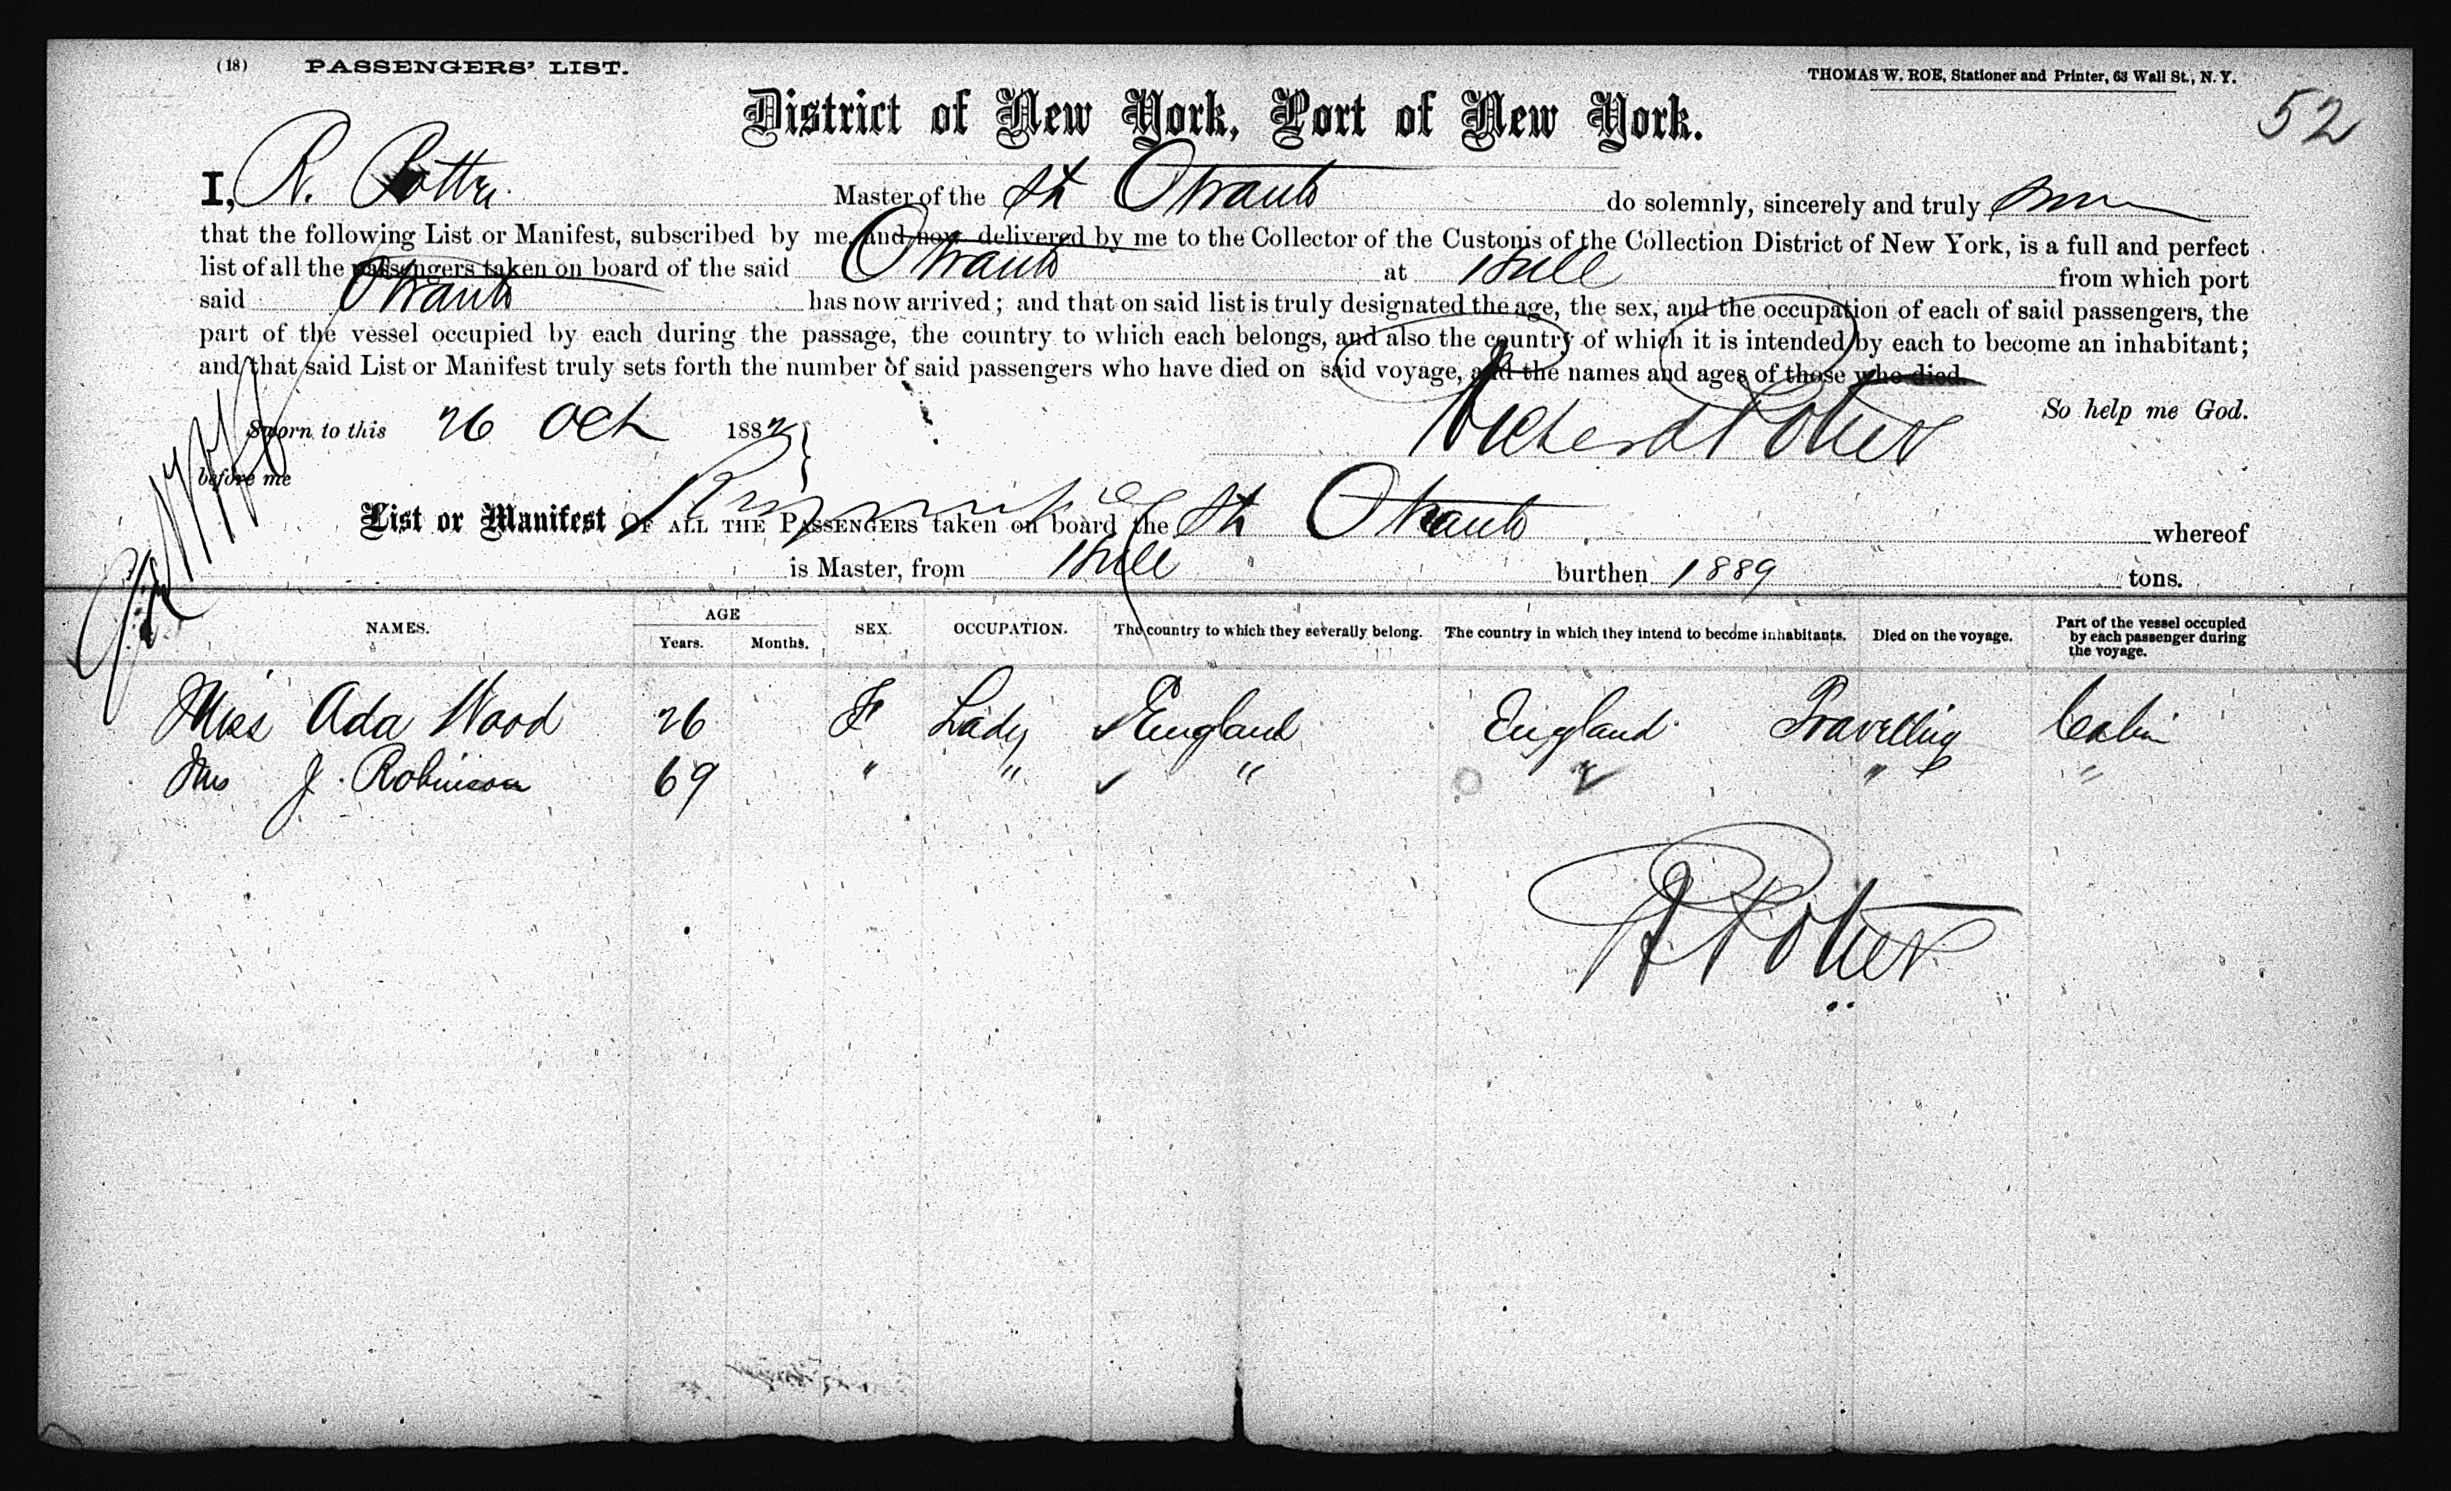 (18) PASSENGERS' LIST.
THOMAS W. ROE, Stationer and Printer, 63 Wall St., N. Y.
52
District of New York, Port of New York.
I, R. Potter Master of the Otranto do solemnly, sincerely and truly
that the following List or Manifest, subscribed by me, and now delivered by me to the Collector of the Customs of the Collection District of New York, is a full and perfect
list of all the passengers taken on board of the said Otranto at Hull from which port
said Otranto has now arrived; and that on said list is truly designated the age, the sex, and the occupation of each of said passengers, the
part of the vessel occupied by each during the passage, the country to which each belongs, and also the country of which it is intended by each to become an inhabitant;
and that said List or Manifest truly sets forth the number of said passengers who have died on said voyage, and the names and ages of those who died.
So help me God.
Sworn to this 26 Oct 188
Richard Potter
before me
List or Manifest OF ALL THE PASSENGERS taken on board the Otranto whereof
is Master, from Hull burthen 1889 tons.
NAMES. AGE Years. Months. SEX. OCCUPATION. The country to which they severally belong. The country in which they intend to become inhabitants. Died on the voyage. Part of the vessel occupied by each passenger during the voyage.
Miss Ada Wood 26 F Lady ✓ England England Travelling Cabin
Mrs J. Robinson 69 " " ✓ " " " "
R Potter